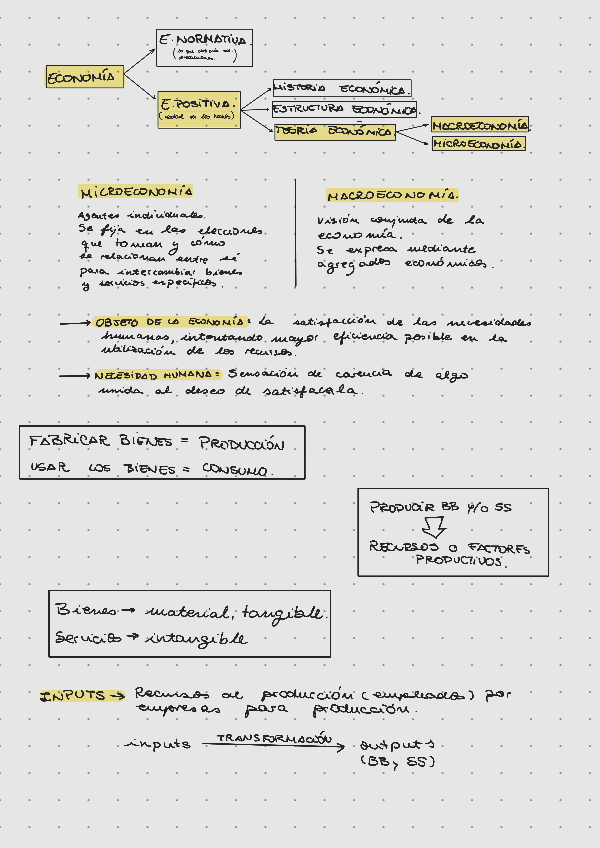 E. NORMATIVA.
(lo que debería ser,
)
ECONOMÍA
E. POSITIVA.
(realidad de los hechos)
HISTORIA ECONÓMICA.
ESTRUCTURA ECONÓMICA.
TEORÍA ECONÓMICA.
MACROECONOMÍA.
MICROECONOMÍA.
MICROECONOMÍA
Agentes individuales.
Se fija en las elecciones.
que toman y cómo
se relacionan entre sí
para intercambiar bienes
y servicios específicos.
MACROECONOMÍA.
Visión conjunta de la
economía.
Se expresa mediante
agregados económicos.
→ OBJETO DE LA ECONOMÍA: La satisfacción de las necesidades
humanas, intentando mayor eficiencia posible en la
utilización de los recursos.
→ NECESIDAD HUMANA: Sensación de carencia de algo
unida al deseo de satisfacerla.
FABRICAR BIENES = PRODUCCIÓN
USAR LOS BIENES = CONSUMO.
PRODUCIR BB y/o SS
RECURSOS O FACTORES
PRODUCTIVOS.
Bienes → material, tangible.
Servicios → intangible
INPUTS → Recursos de producción (empleados) por
empresas para producción.
TRANSFORMACIÓN
inputs → outputs
(BB y SS)